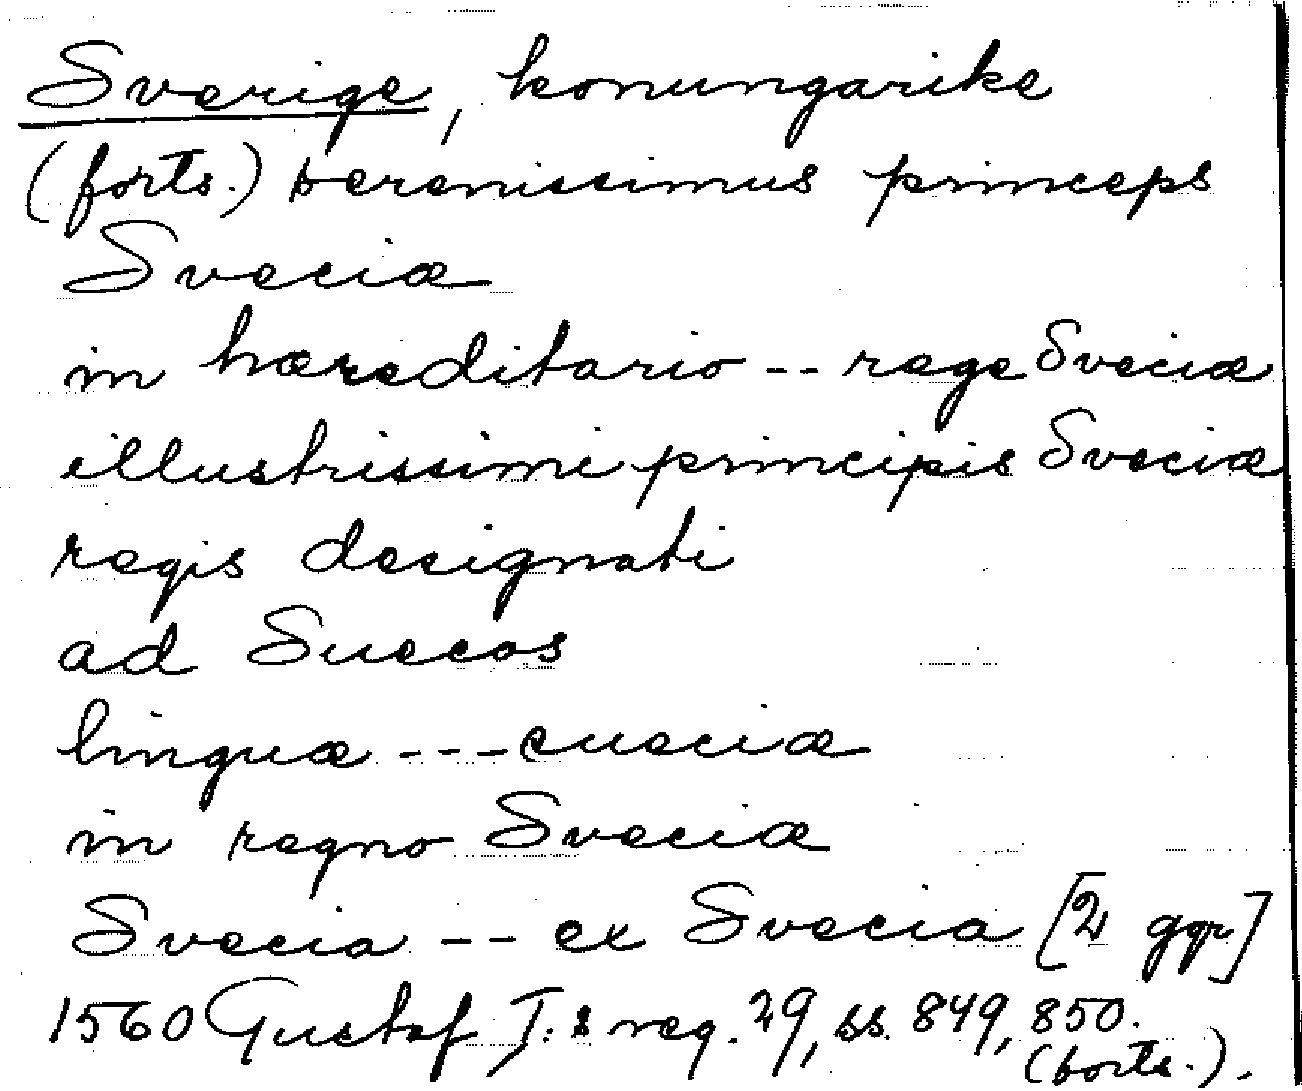 Sverige, konungarike
(forts.) serenissimus princeps
Sveciæ
in hæreditario -- rege Sveciæ
illustrissimi principis Sveciæ
regis designati
ad Suecos
linguæ --- sueciæ
in regno Sveciæ
Svecia -- ex Svecia [2 ggr]
1560 Gustaf I:s reg. 29, ss. 849, 850.
(forts.).